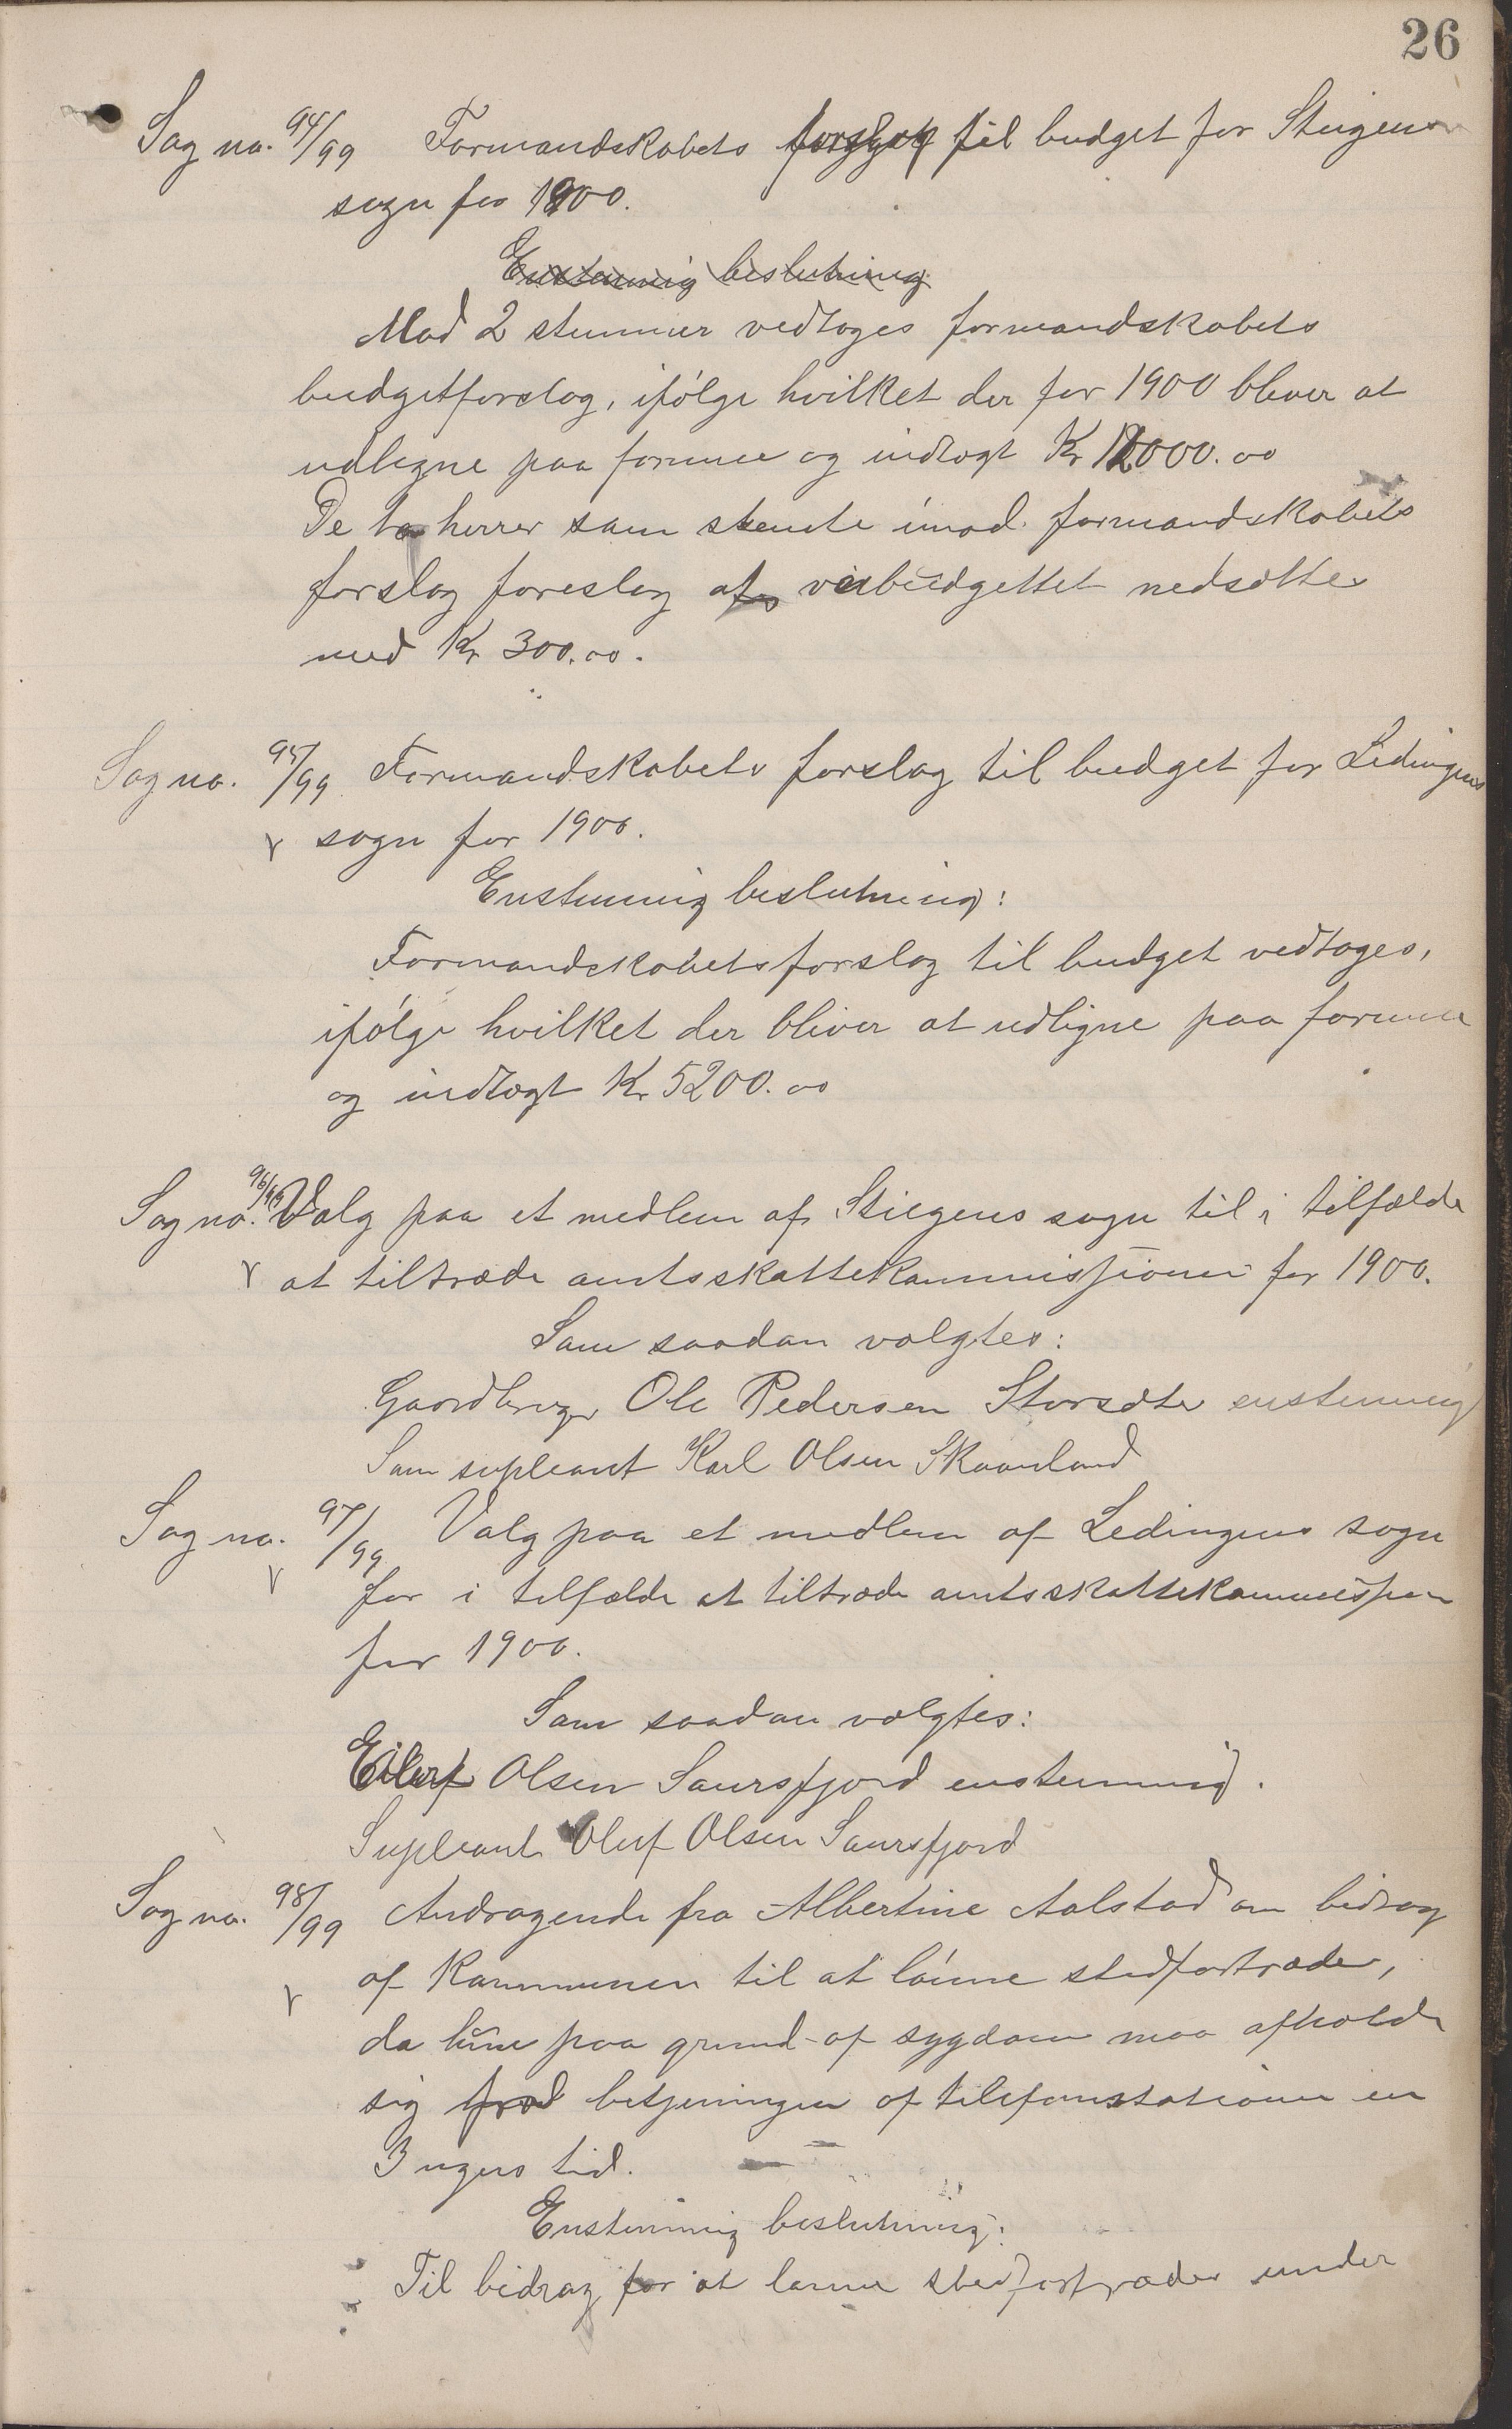 26
Sag no. 94/99 Formandskabets forslag til budget for Steigens
sogn for 1900.
Enstemmig beslutning
Mod 2 stemmer vedtoges formandskabets
budgetforslag, ifölge hvilket der for 1900 bliver at
udligne paa formue og indtægt Kr 12000.00
De to herrer som stemte imod formandskabets
forslag foreslog at veibudgettet nedsættes
med Kr 300.00.
Sag no. 95/99 Formandskabets forslag til budget for Ledingens
sogn for 1900.
Enstemmig beslutning:
Formandskabets forslag til budget vedtoges,
ifölge hvilket der bliver at udligne paa formue
og indtægt Kr 5200.00
Sag no. 96/99 Valg paa et medlem af Stiegens sogn til i tilfælde
at tiltræde amtsskattekommissionen for 1900.
Som saadan valgtes:
Gaardbruger Ole Pedersen Storsæter enstemmig
Som supleant Karl Olsen Skaanland
Sag no. 97/99 Valg paa et medlem af Ledingens sogn
for i tilfælde at tiltræde amtsskattekommissionen
for 1900.
Som saadan valgtes:
Eilert Olsen Saursfjord enstemmig.
Supleant Oluf Olsen Saursfjord
Sag no. 98/99 Andragende fra Albertine Aalstad om bidrag
af kommunen til at lönne stedfortræder,
da hun paa grund af sygdom maa afholde
sig fra betjeningen af telefonstationen en
3 ugers tid.
Enstemmig beslutning:
Til bidrag for at lønne stedfortræder under